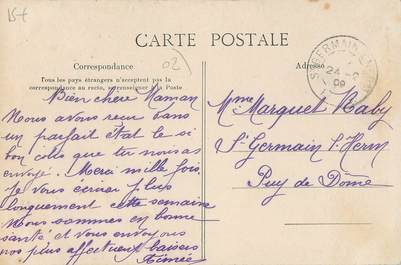 15t
02
CARTE POSTALE
Correspondance
Tous les pays étrangers n'acceptent pas la
correspondance au recto, se renseigner à la Poste
Adresse
ST GERMAIN
24
09
Bien chère Maman
Nous avons reçu dans
un parfait état le si
bon colis que tu nous as
envoyé. Merci mille fois.
Je vous cerrai plus
longuement cette semaine
Nous sommes en bonne
santé et vous envoyons
nos plus affectueux baisers
Aimée
Mme Marguet Naby
St Germain l'Herm
Puy de Dôme